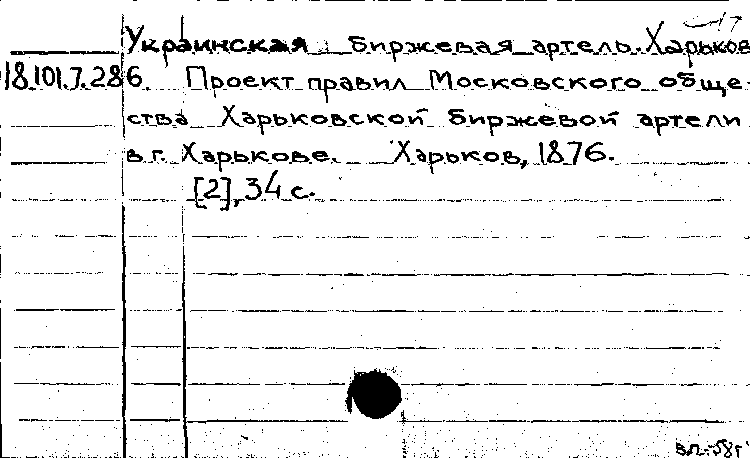 Украинская биржевая артель. Харьков
18.101.7.286. Проект правил Московского обще-
ства Харьковской биржевой артели
в г. Харькове. Харьков, 1876.
[2], 34 с.